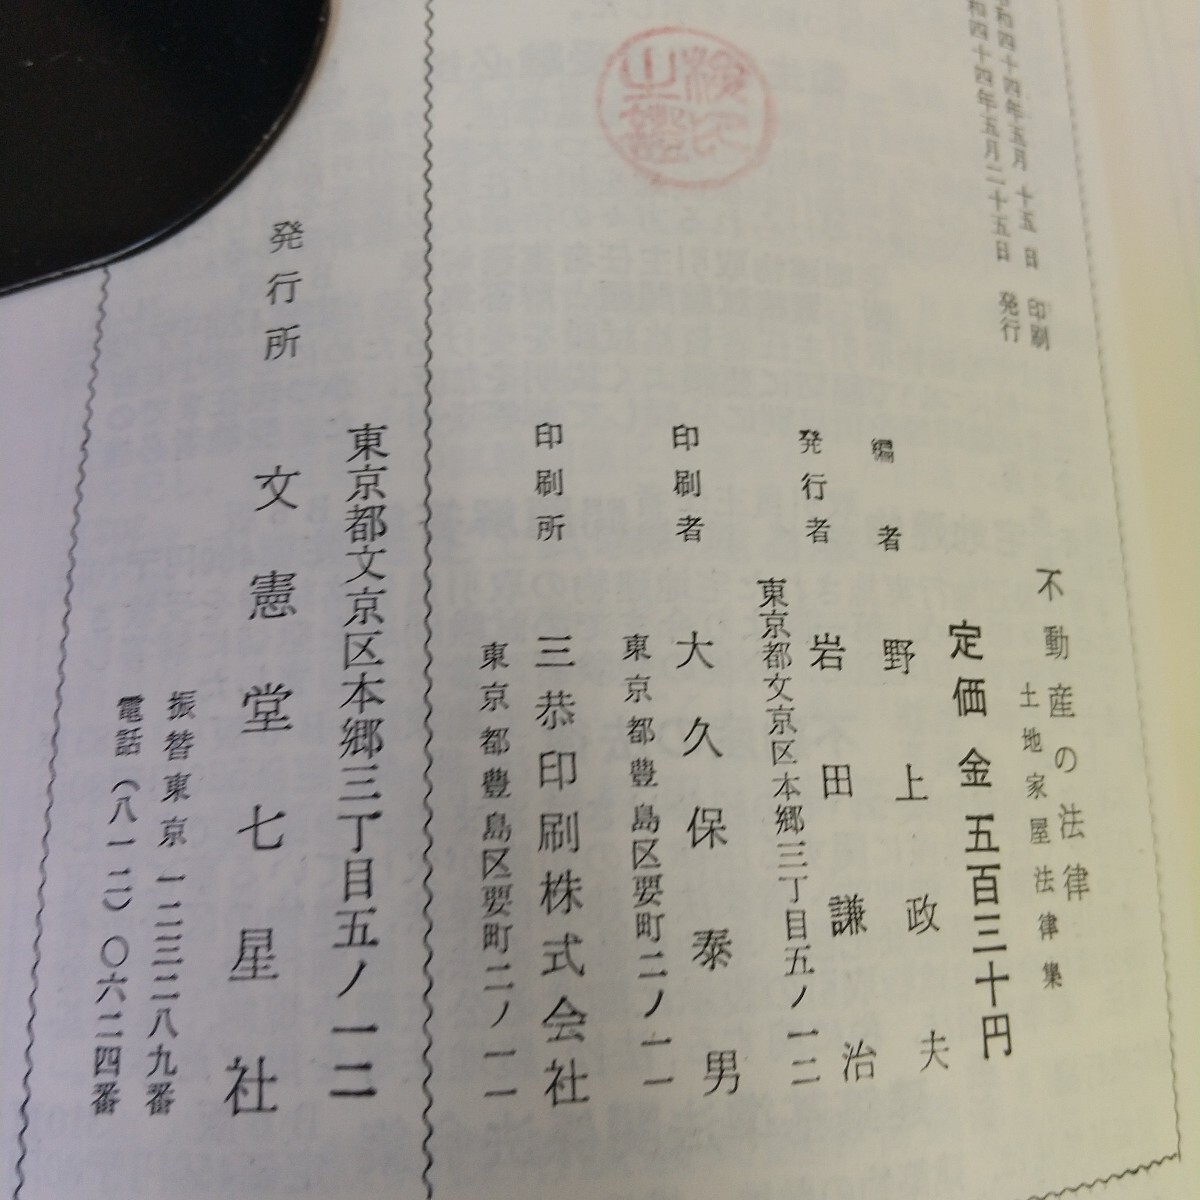 和四十四年五月 十五 日 印刷
和四十四年五月二十五日 発行
不動産の法律
土地家屋法律集
定価金五百三十円
編者 野上政夫
発行者 岩田謙治
東京都文京区本郷三丁目五ノ一二
印刷者 大久保泰男
東京都豊島区要町二ノ一一
印刷所 三恭印刷株式会社
東京都豊島区要町二ノ一一
東京都文京区本郷三丁目五ノ一二
発行所 文憲堂七星社
振替東京一二三二八九番
電話(八一二)〇六二四番